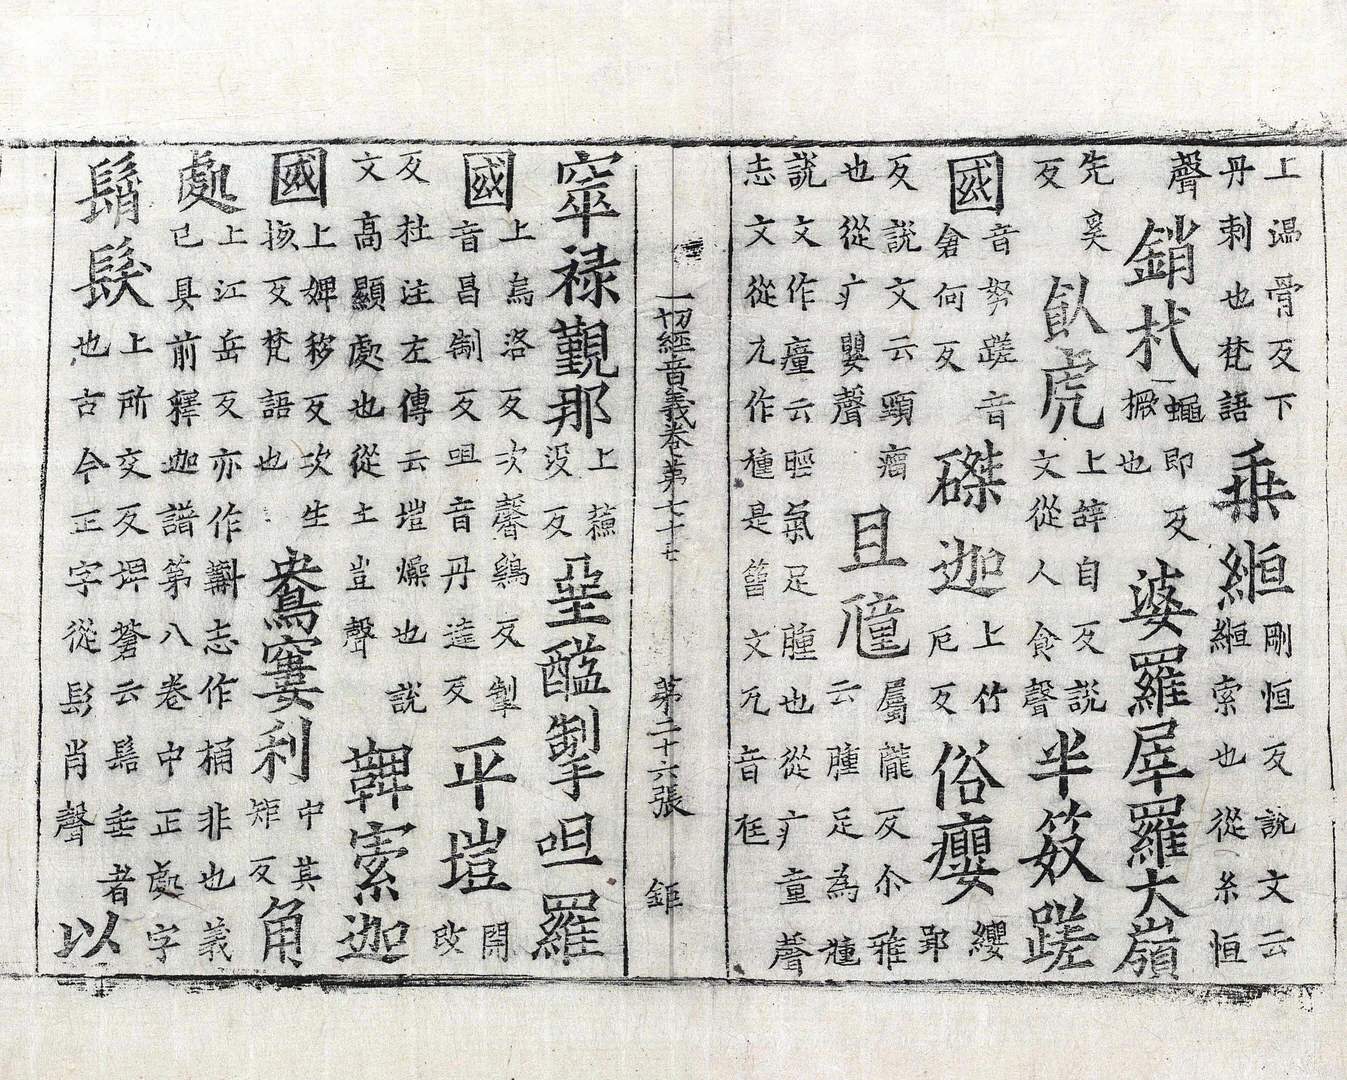 上温骨反下
丹剌也梵語
乗縆
剛恒反説文云
縆索也從糸恒
聲
銷杙
蝇即反
橛也
婆羅犀羅大嶺
先奚
反
飤虎
上辞自反説
文從人食聲
半笯蹉
國
音努蹉音
倉何反
磔迦
上竹
厄反
俗癭
纓
郢
反説文云頸瘤
也從疒嬰聲
且𤺄
屬龍反尒雅
云腫足為尰
説文作㿈云脛氣足腫也從疒童聲
志文從尢作尰是籀文尢音尪
一切經音義卷第七十七 第二十六張 鉅
窣禄覲那
上蘇
没反
堊醯掣呾羅
國
上烏洛反次馨鷄反掣
音昌制反呾音丹達反
平塏
開
改
反杜注左傳云塏燥也説
文高顯處也從土豈聲
鞞索迦
國
上婢移反次生
挌反梵語也
鴦窶利
中其
矩反
角
處
上江岳反亦作斠志作桷非也義
已具前釋迦譜第八卷中正處字
鬅髮
上所交反埤蒼云髾垂者
也古今正字從髟肖聲
以